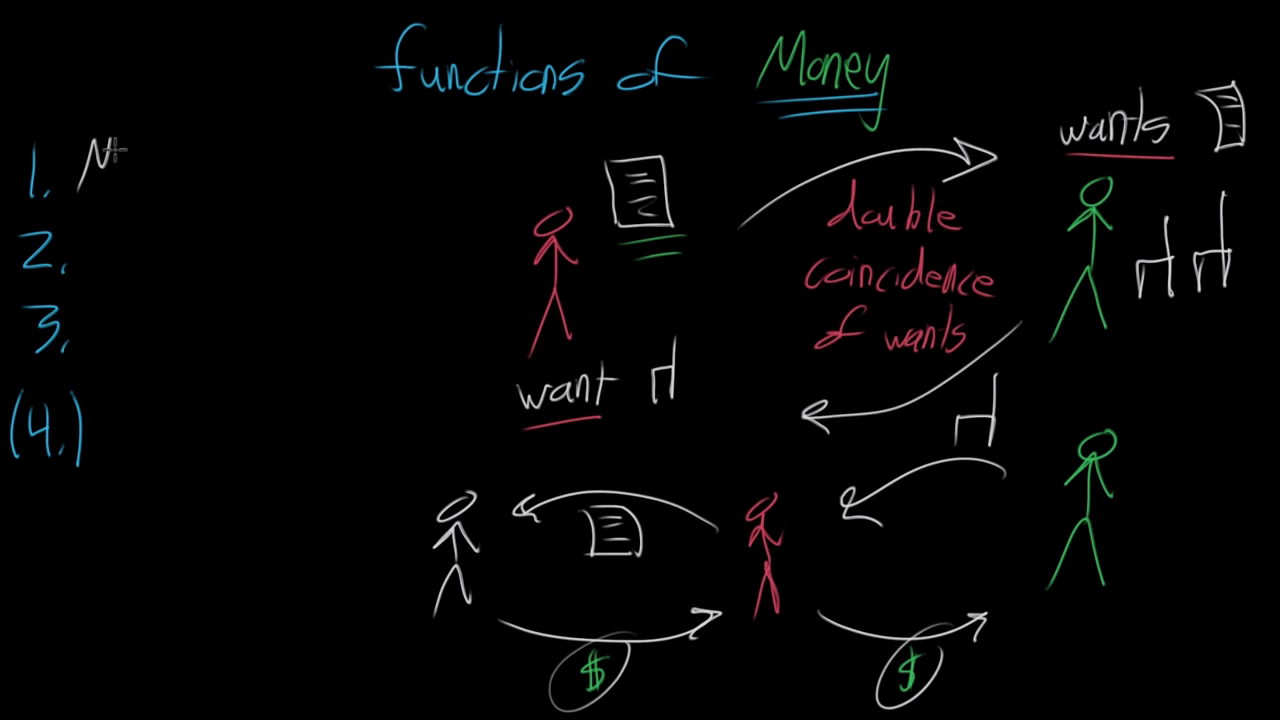 functions of Money
wants
1. M
double
2.
coincidence
3.
of wants
want
(4.)
$ $